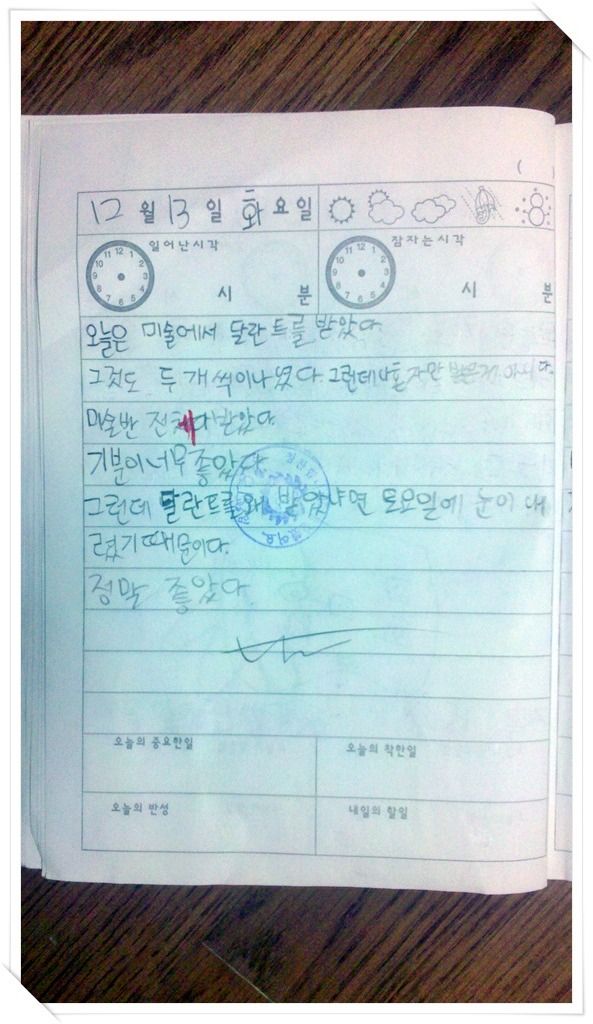 12 월 13 일 화 요일
일어난시각
잠자는시각
11 12 1 2 3 4 5 6 7 8 9 10
11 12 1 2 3 4 5 6 7 8 9 10
시 분
시 분
오늘은 미술에서 달란트를 받았다.
그것도 두개씩이나 였다. 그런데 나혼자만 받은게 아니다.
미술반 전체다 받았다.
기분이너무 좋았다
그런데 달란트를 왜 받았냐면 토요일에 눈이 내
렸기때문이다.
정말 좋았다.
오늘의 중요한일
오늘의 착한일
오늘의 반성
내일의 할일